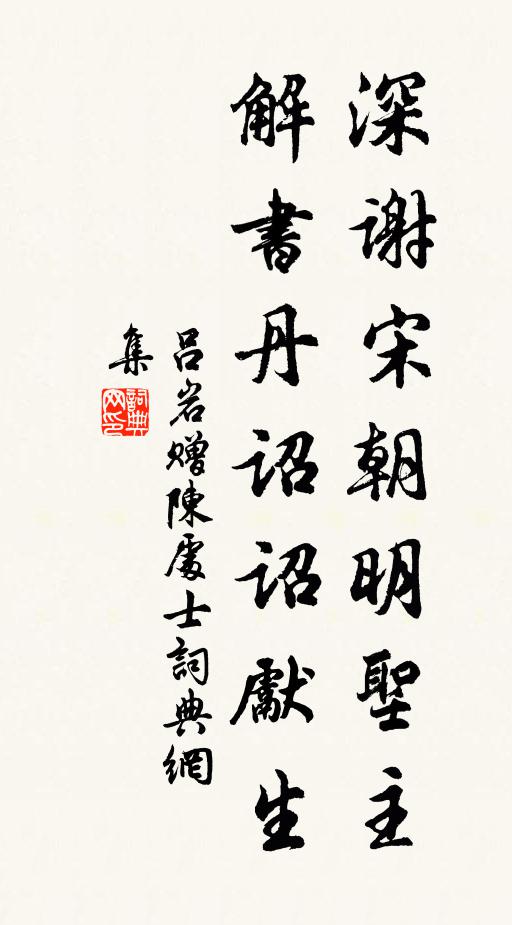 深謝宋朝明聖主
解書丹詔詔獻生
吕岩赠陳處士詞典網
集
詞典网印